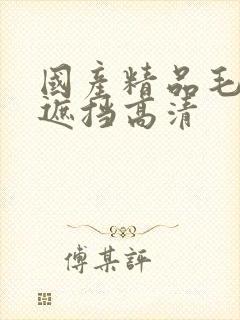 國產精品毛
遮挡高清
傅某評